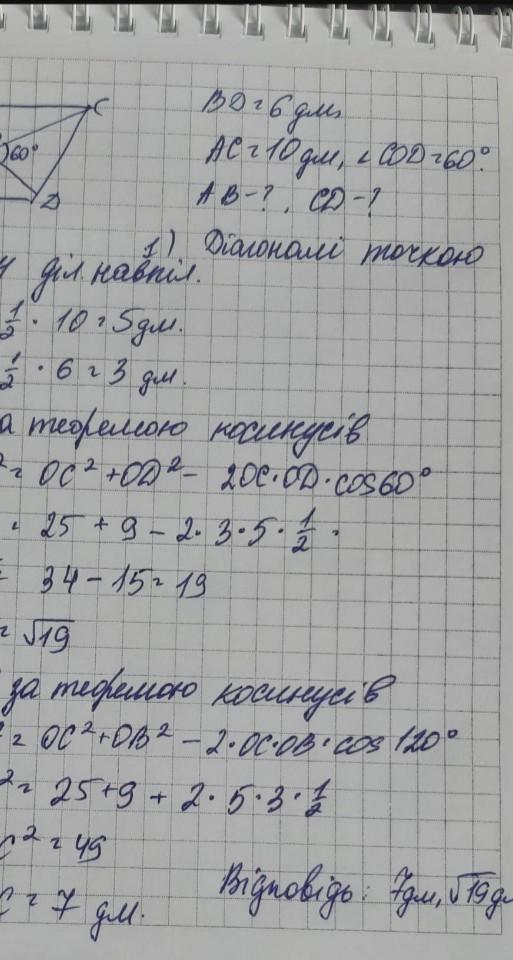 C
60°
D
BD = 6 дм,
AC = 10 дм, ∠ COD = 60°.
AB - ?, CD - ?
1) Діагоналі точкою
діл. навпіл.
1/2 · 10 = 5 дм.
1/2 · 6 = 3 дм.
а теоремою косинусів
² = OC² + OD² - 2OC·OD·cos60°
= 25 + 9 - 2·3·5·1/2 =
= 34 - 15 = 19
= √19
за теоремою косинусів
² = OC² + OB² - 2·OC·OB·cos 120°
² = 25 + 9 + 2·5·3·1/2
C² = 49
C = 7 дм.
Відповідь: 7дм, √19 дм